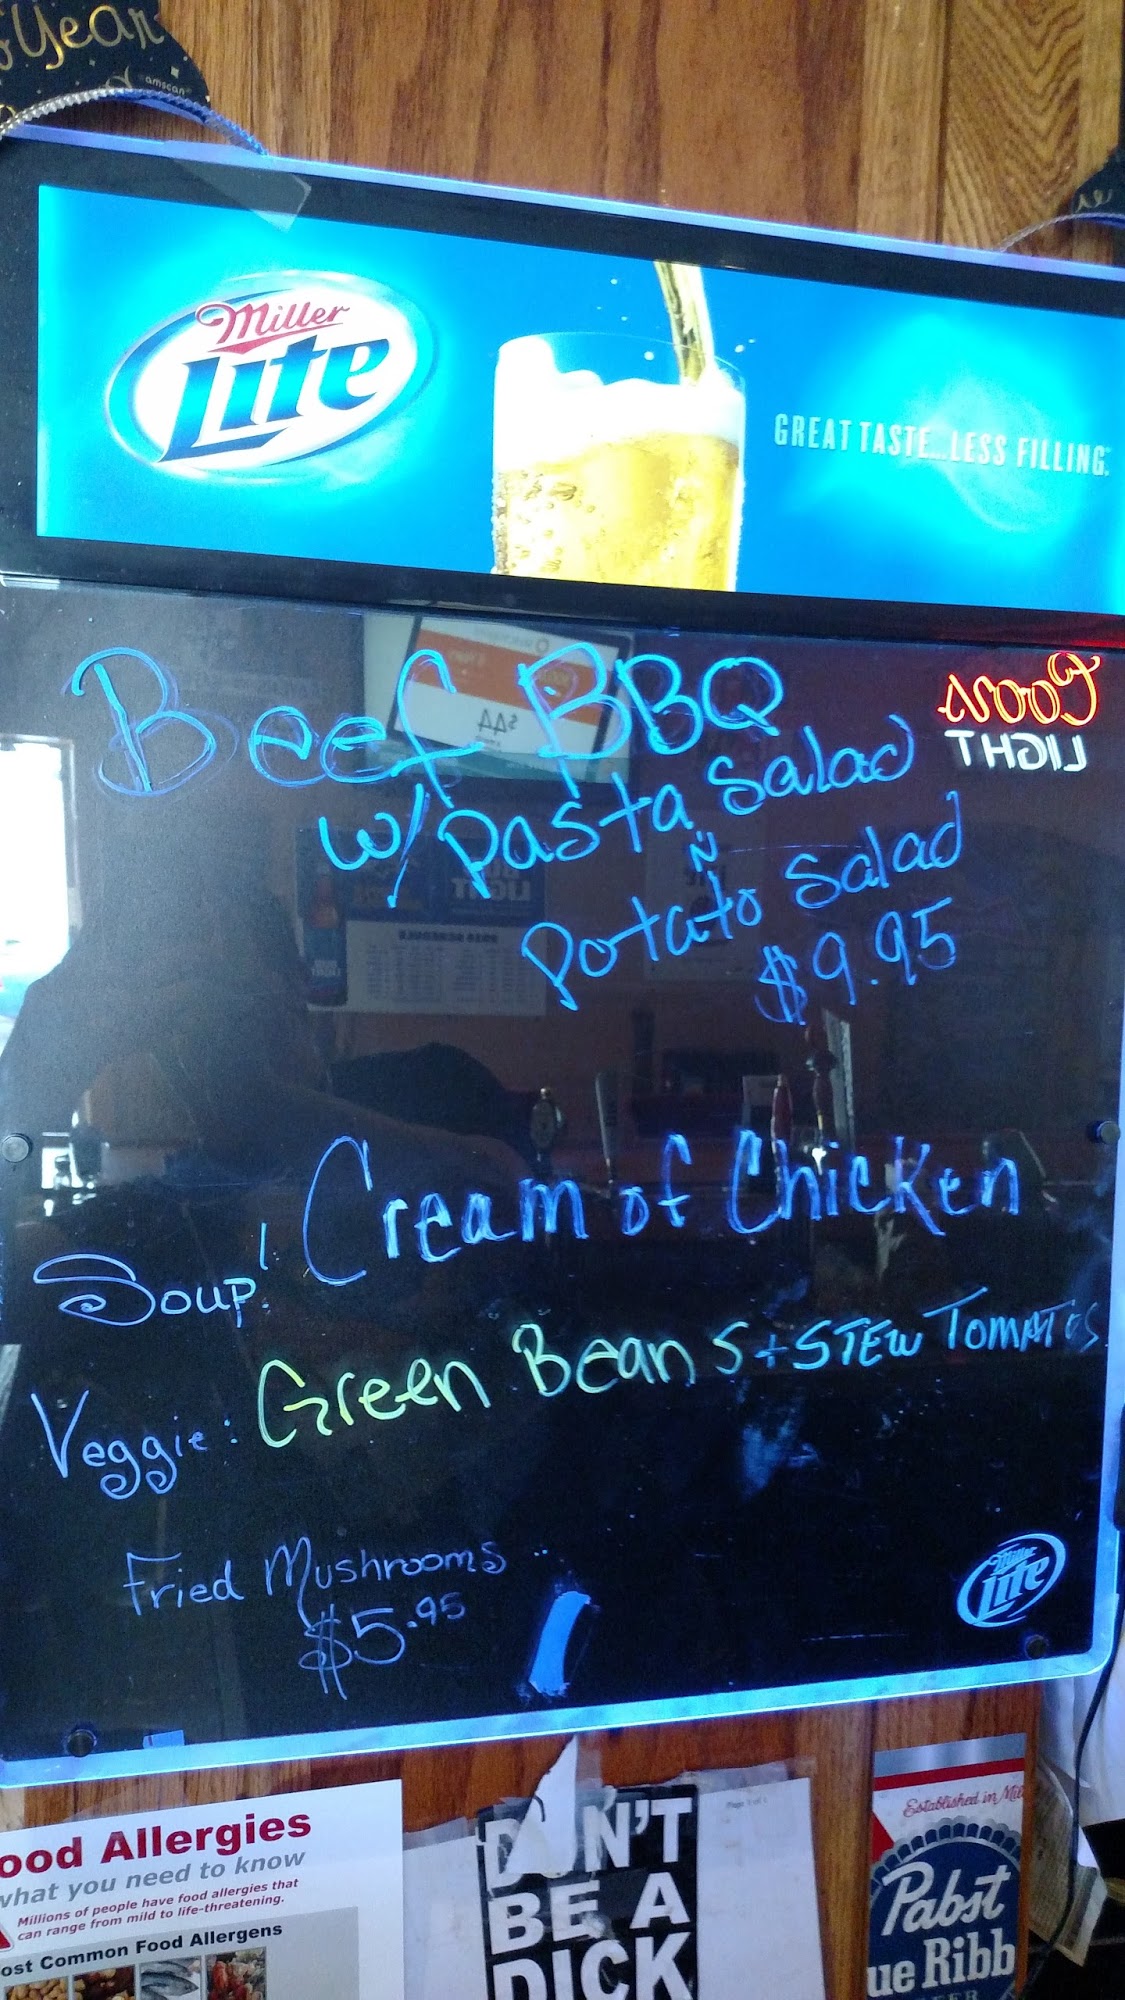 Year
amscan
Miller
Lite
GREAT TASTE...LESS FILLING.
Beef BBQ
Coors
LIGHT
$44
w/ pasta salad
N
potato salad
$9.95
LIGHT
Soup: Cream of Chicken
Veggie: Green Beans + STEW TOMATOS
Fried Mushrooms
$5.95
Miller
Lite
ood Allergies
what you need to know
Millions of people have food allergies that
can range from mild to life-threatening.
ost Common Food Allergens
DON'T
BE A
DICK
Page 1 of 1
Established in Mil
Pabst
ue Ribb